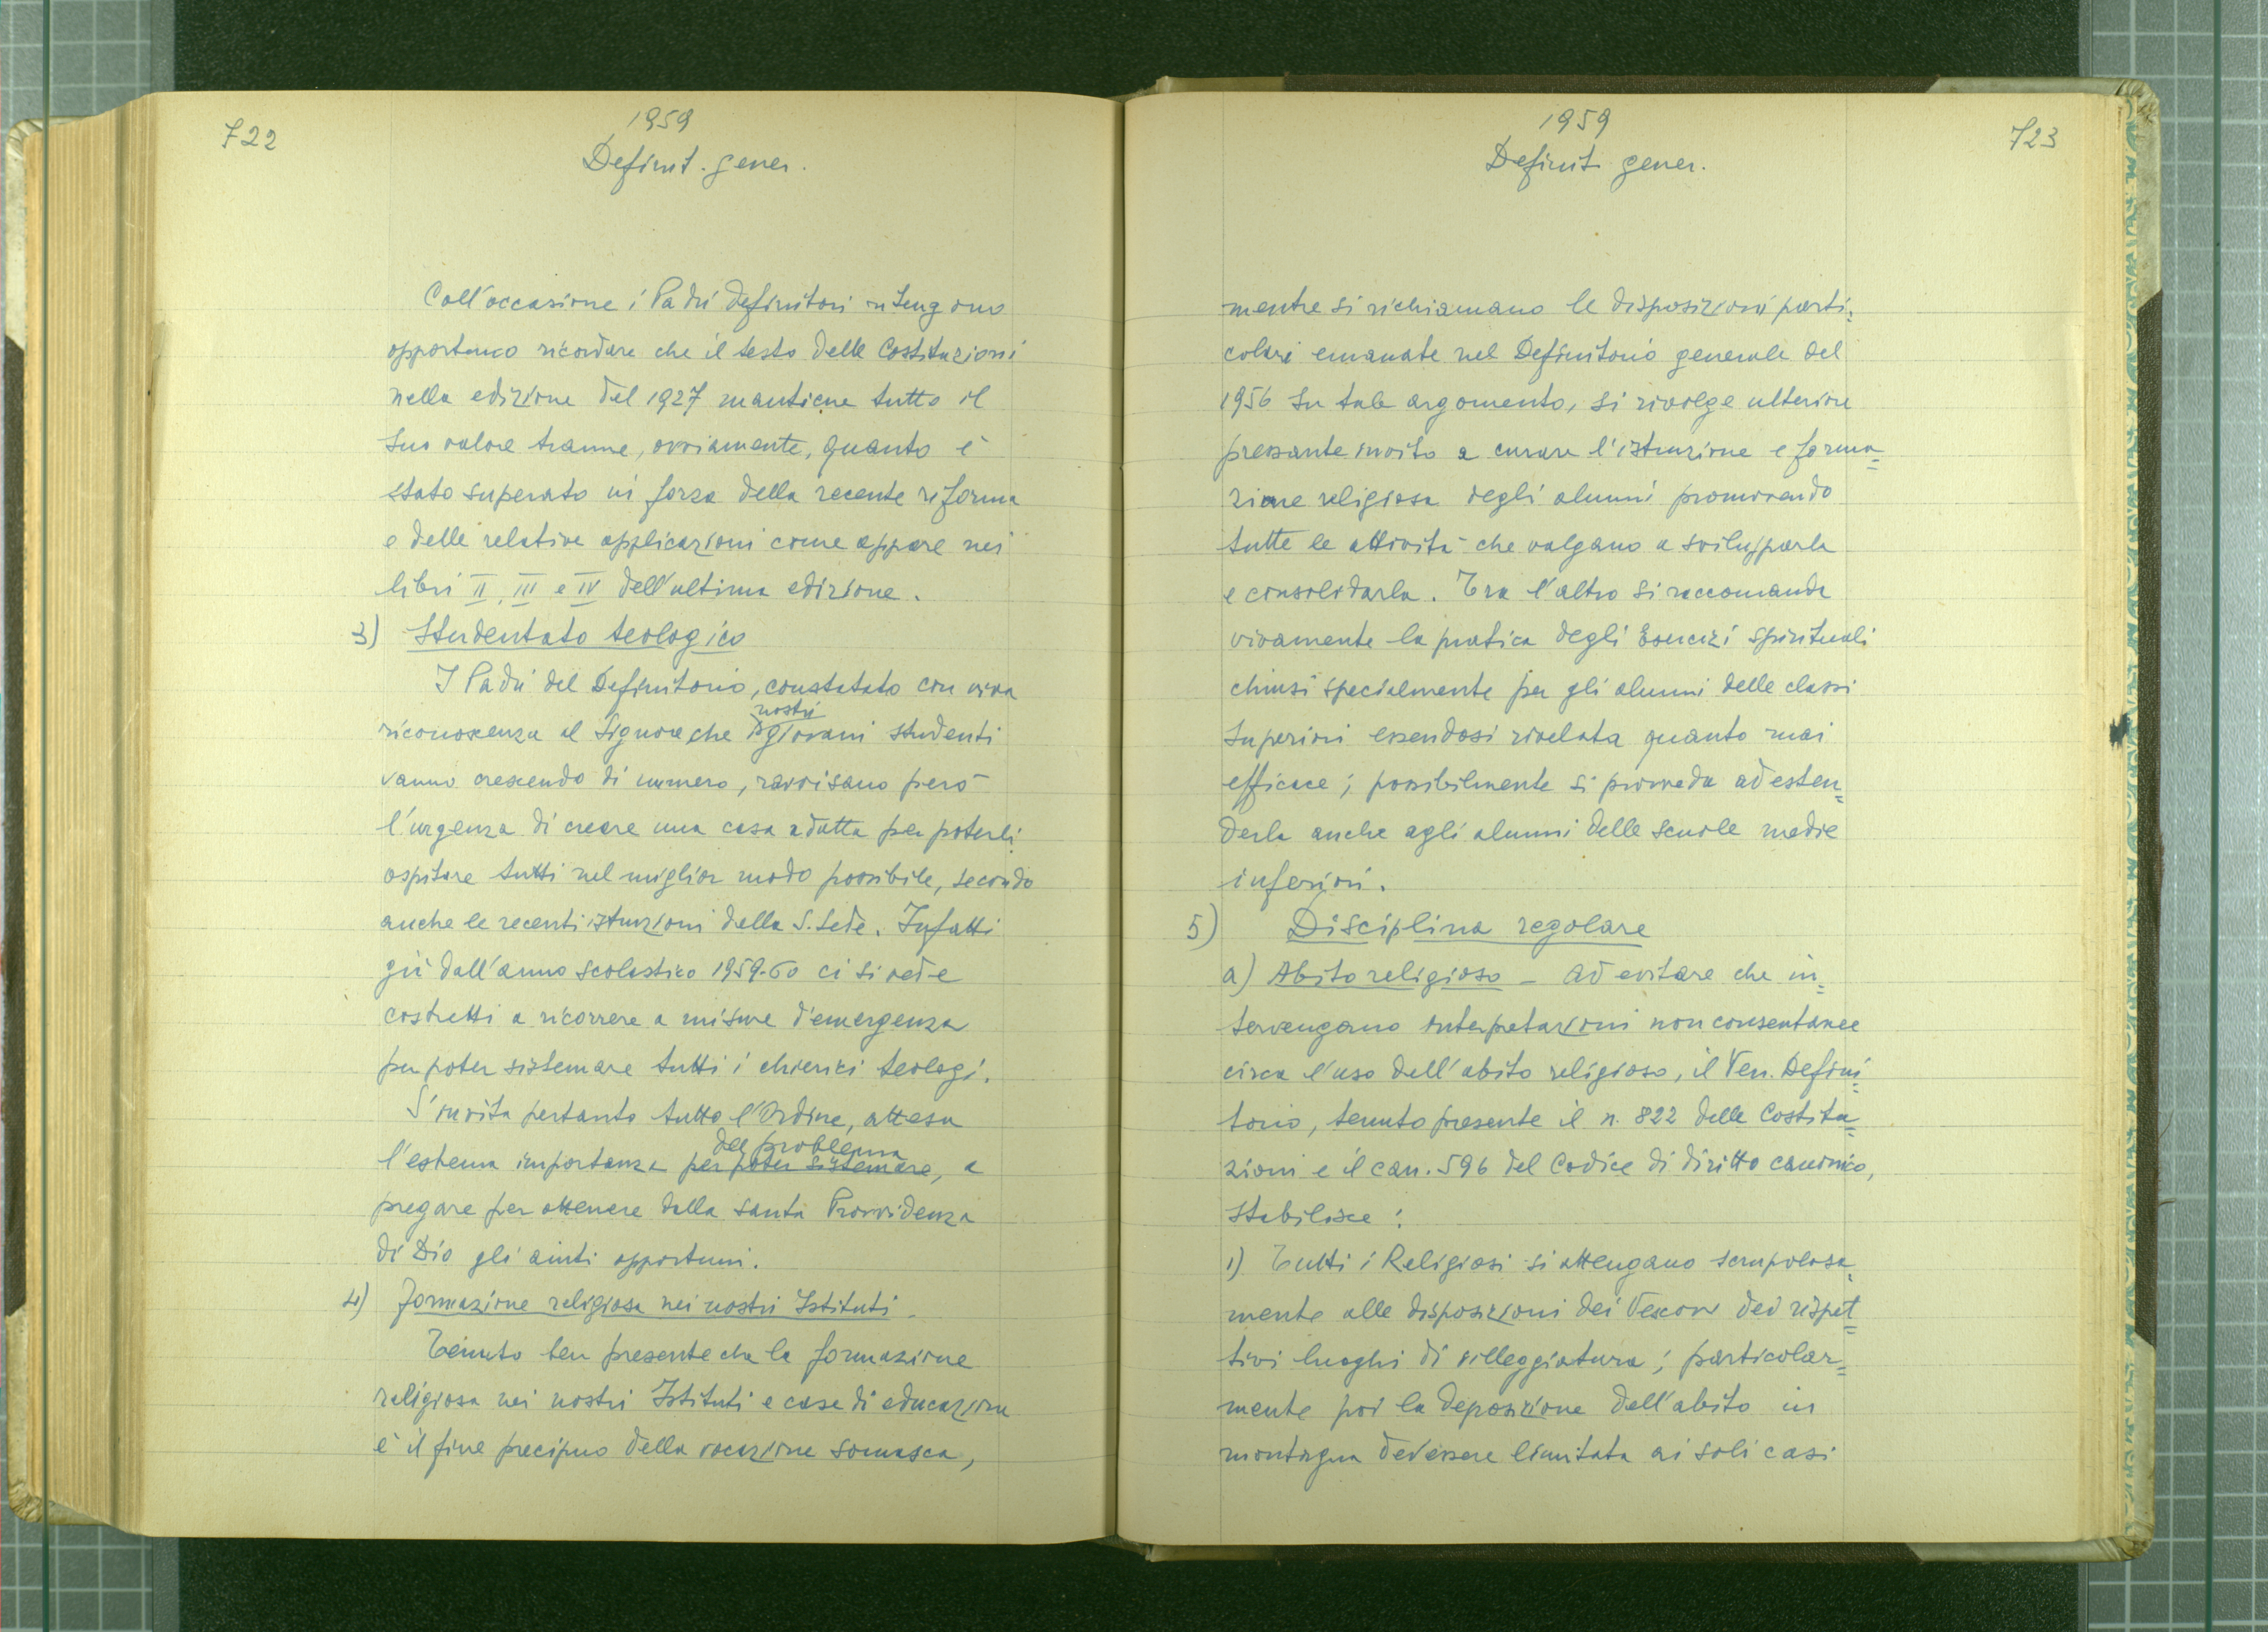 722
1959
Definit. gener.
Coll'occasione i Padri Definitori ritengono
opportuno ricordare che il testo delle Costituzioni
nella edizione del 1927 mantiene tutto il
suo valore tranne, ovviamente, quanto è
stato superato in forza della recente riforma
e delle relative applicazioni come appare nei
libri II, III e IV dell'ultima edizione.
3) Studentato teologico
I Padri del Definitorio, constatato con viva
nostri
riconoscenza al Signore che i giovani studenti
vanno crescendo di numero, ravvisano però
l'urgenza di creare una casa adatta per poterli
ospitare tutti nel miglior modo possibile, secondo
anche le recenti istruzioni della S. Sede. Infatti
già dall'anno scolastico 1959-60 ci si vede
costretti a ricorrere a misure d'emergenza
per poter sistemare tutti i chierici teologi.
S'invita pertanto tutto l'Ordine, attesa
del problema
l'estrema importanza per poter sistemare, a
pregare per ottenere dalla santa Provvidenza
di Dio gli aiuti opportuni.
4) formazione religiosa nei nostri Istituti -
Tenuto ben presente che la formazione
religiosa nei nostri Istituti e case di educazione
è il fine precipuo della vocazione somasca,
723
1959
Definit. gener.
mentre si richiamano le disposizioni parti=
colari emanate nel Definitorio generale del
1956 su tale argomento, si rivolge ulteriore
pressante invito a curare l'istruzione e forma=
zione religiosa degli alunni promovendo
tutte le attività che valgano a svilupparla
e consolidarla. Tra l'altro si raccomanda
vivamente la pratica degli Esercizi spirituali
chiusi specialmente per gli alunni delle classi
superiori essendosi rivelata quanto mai
efficace; possibilmente si provveda ad esten=
derla anche agli alunni delle scuole medie
inferiori.
5) Disciplina regolare
a) Abito religioso - Ad evitare che in=
tervengano interpretazioni non consentanee
circa l'uso dell'abito religioso, il Ven. Defini=
torio, tenuto presente il n. 822 delle Costitu=
zioni e il can. 596 del Codice di diritto canonico,
stabilisce:
1) Tutti i Religiosi si attengano scrupolosa=
mente alle disposizioni dei Vescovi dei rispet=
tivi luoghi di villeggiatura; particolar=
mente poi la deposizione dell'abito in
montagna dev'essere limitata ai soli casi